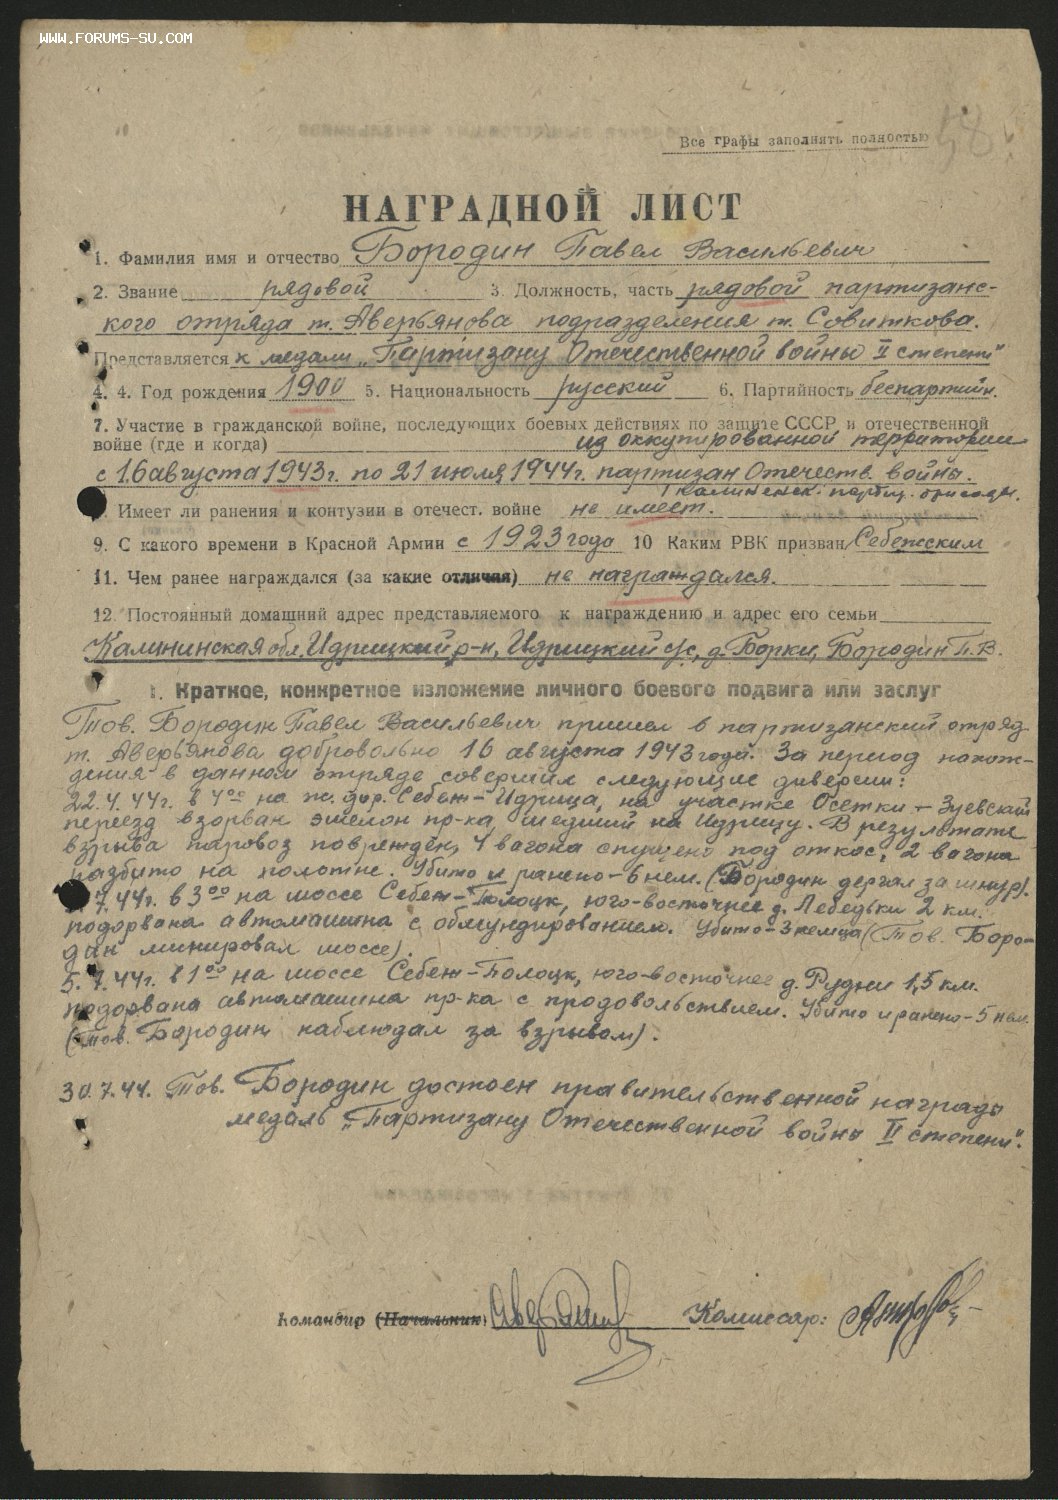 WWW.FORUMS-SU.COM
58
Все графы заполнять полностью
НАГРАДНОЙ ЛИСТ
1. Фамилия имя и отчество Бородин Павел Васильевич
2. Звание рядовой 3. Должность, часть рядовой партизанс-
кого отряда т. Аверьянова подразделения т. Совиткова.
Представляется к медали „Партизану Отечественной войны II степени"
4. 4. Год рождения 1900 5. Национальность русский 6. Партийность беспартийн.
7. Участие в гражданской войне, последующих боевых действиях по защите СССР и отечественной
войне (где и когда) из оккупированной территории
с 16 августа 1943г. по 21 июля 1944г. партизан Отечеств. войны.
Калининск. партиз. бригады.
Имеет ли ранения и контузии в отечест. войне не имеет.
9. С какого времени в Красной Армии с 1923 года 10 Каким РВК призван Себежским
11. Чем ранее награждался (за какие отличия) не награждался.
12. Постоянный домашний адрес представляемого к награждению и адрес его семьи
Калининская обл. Идрицкий р-н, Идрицкий с/с, д. Борки, Бородин П.В.
I. Краткое, конкретное изложение личного боевого подвига или заслуг
Тов. Бородин Павел Васильевич пришел в партизанский отряд
т. Аверьянова добровольно 16 августа 1943 года. За период нахож-
дения в данном отряде совершил следующие диверсии:
22.4.44г. в 4⁰⁰ на ж. дор. Себеж-Идрица, на участке Осетки - Зуевский
переезд взорван эшелон пр-ка, шедший на Идрицу. В результате
взрыва паровоз поврежден, 4 вагона спущено под откос, 2 вагона
разбито на полотне. Убито и ранено-6 нем. (Бородин дергал за шнур).
7.44г. в 3⁰⁰ на шоссе Себеж-Полоцк, юго-восточнее д. Лебедьки 2 км.
подорвана автомашина с обмундированием. Убито-3 немца (Тов. Боро-
дин минировал шоссе).
5.7.44г. в 1⁰⁰ на шоссе Себеж-Полоцк, юго-восточнее д. Рудни 1,5 км.
подорвана автомашина пр-ка с продовольствием. Убито и ранено-5 нем.
(Тов. Бородин наблюдал за взрывом).
30.7.44. Тов. Бородин достоен правительственной награды
медаль „Партизану Отечественной войны II степени".
Командир (Начальник) Комиссар: